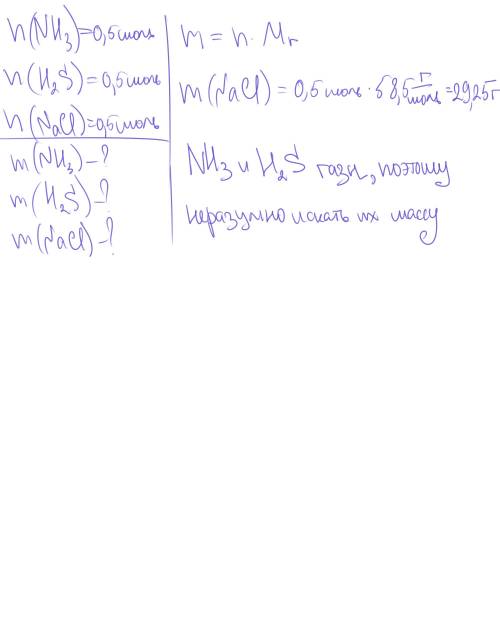 n(NH₃)=0,5 моль
n(H₂S)=0,5 моль
n(NaCl)=0,5 моль
m(NH₃)-?
m(H₂S)-?
m(NaCl)-?
m = n · Mr
m(NaCl) = 0,5 моль · 58,5 г/моль = 29,25 г
NH₃ и H₂S газы, поэтому
неразумно искать их массу